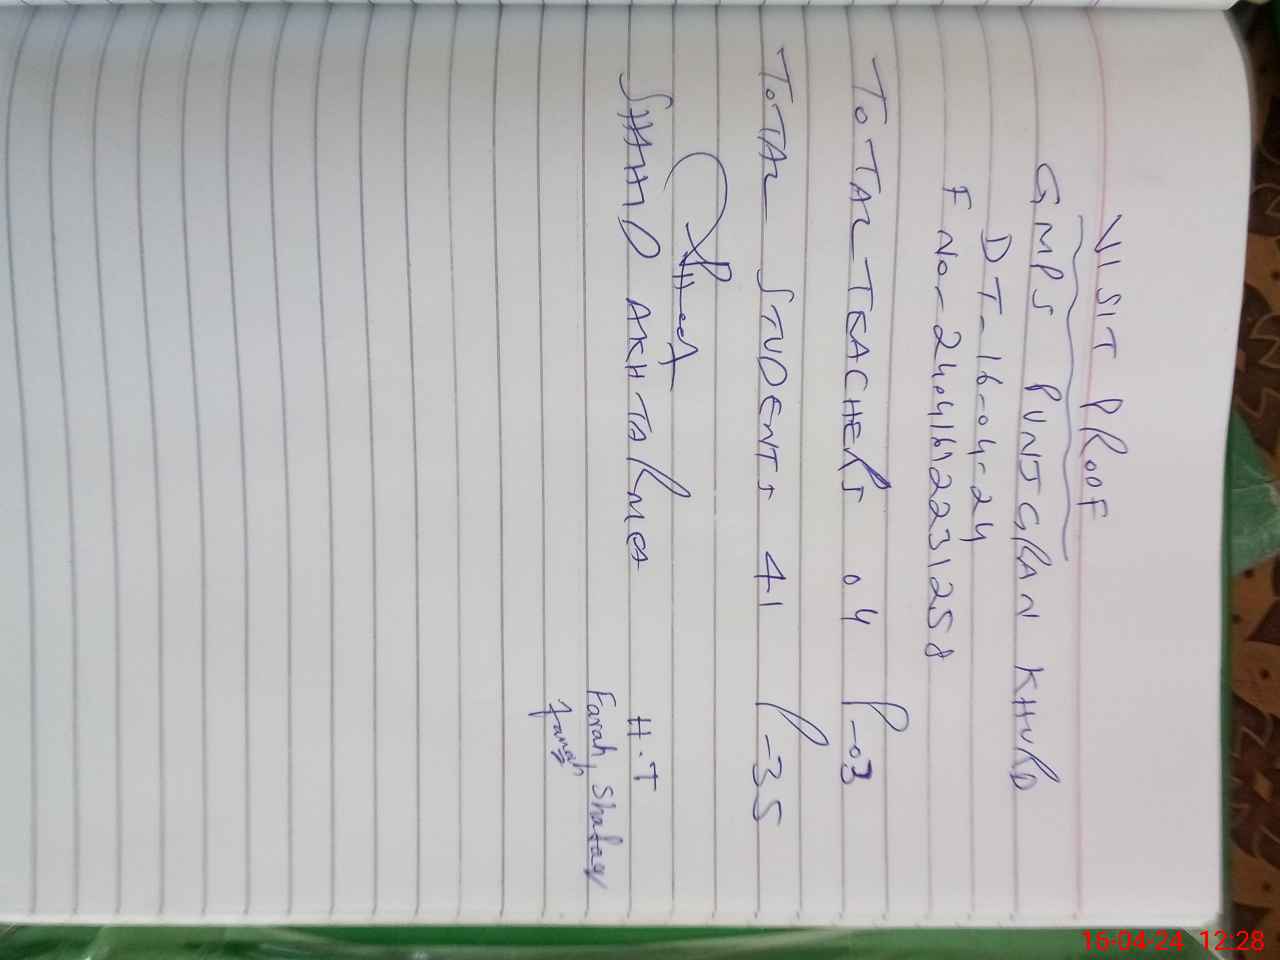 VISIT PROOF
GMPS PUNJGRAN KHURD
DT-16-04-24
F No-
TOTAL TEACHERS 04 P-03
TOTAL STUDENTS 41 P-35
SHAHID AKHTAR
H.T
Farah Shafaq
Farah
16-04-24 12:28